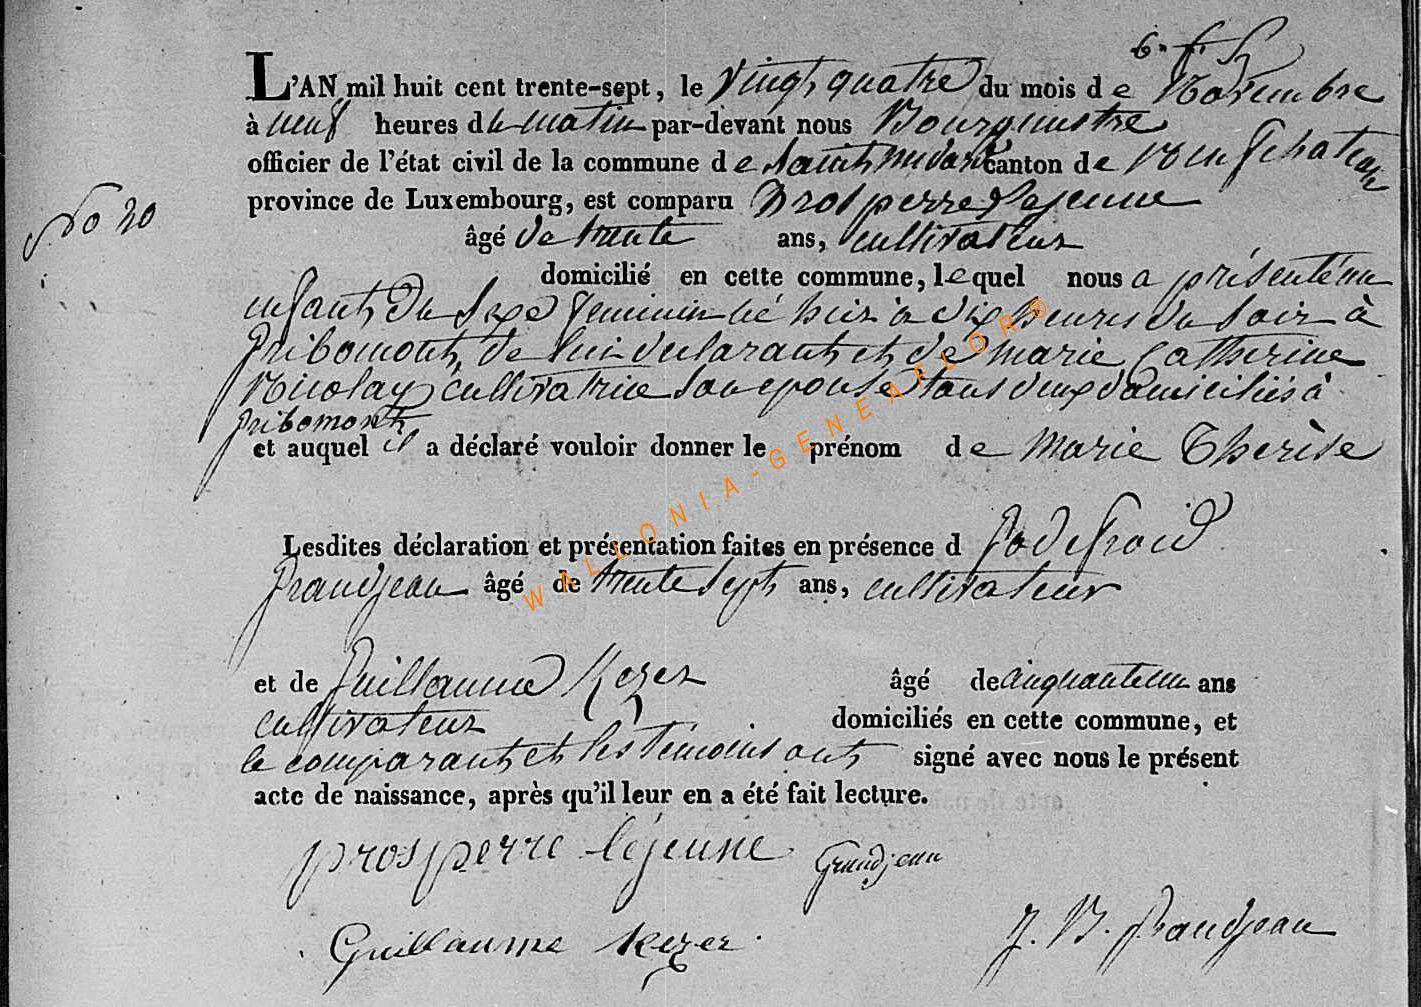 L'AN mil huit cent trente-sept, le vingt quatre du mois de Novembre
à neuf heures du matin par-devant nous Bourgmestre
officier de l'état civil de la commune de Saint medard canton de Neufchateau
province de Luxembourg, est comparu Prosperre Lejeune
No 20
âgé de trente ans, cultivateur
domicilié en cette commune, lequel nous a présenté un
enfant du Sexe feminin né hier à dix heures du Soir à
Gribomont, de lui declarant et de marie Catherine
Nicolay cultivatrice Son epouse tous deux domiciliés à
Gribomont
et auquel il a déclaré vouloir donner le prénom de Marie Therèse
Lesdites déclaration et présentation faites en présence d Godefroid
Grandjean âgé de trente Sept ans, cultivateur
et de Guillaume Kezer âgé de cinquante un ans
cultivateur domiciliés en cette commune, et
le comparant et les témoins ont signé avec nous le présent
acte de naissance, après qu'il leur en a été fait lecture.
prosperre lejeune Grandjean
Guillaume Kezer J. B. Grandjean
WALLONIA-GENEAFLOR©